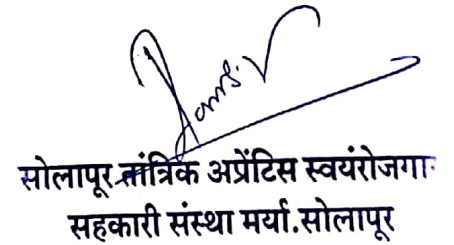 सोलापूर तांत्रिक अप्रेंटिस स्वयंरोजगा
सहकारी संस्था मर्या.सोलापूर